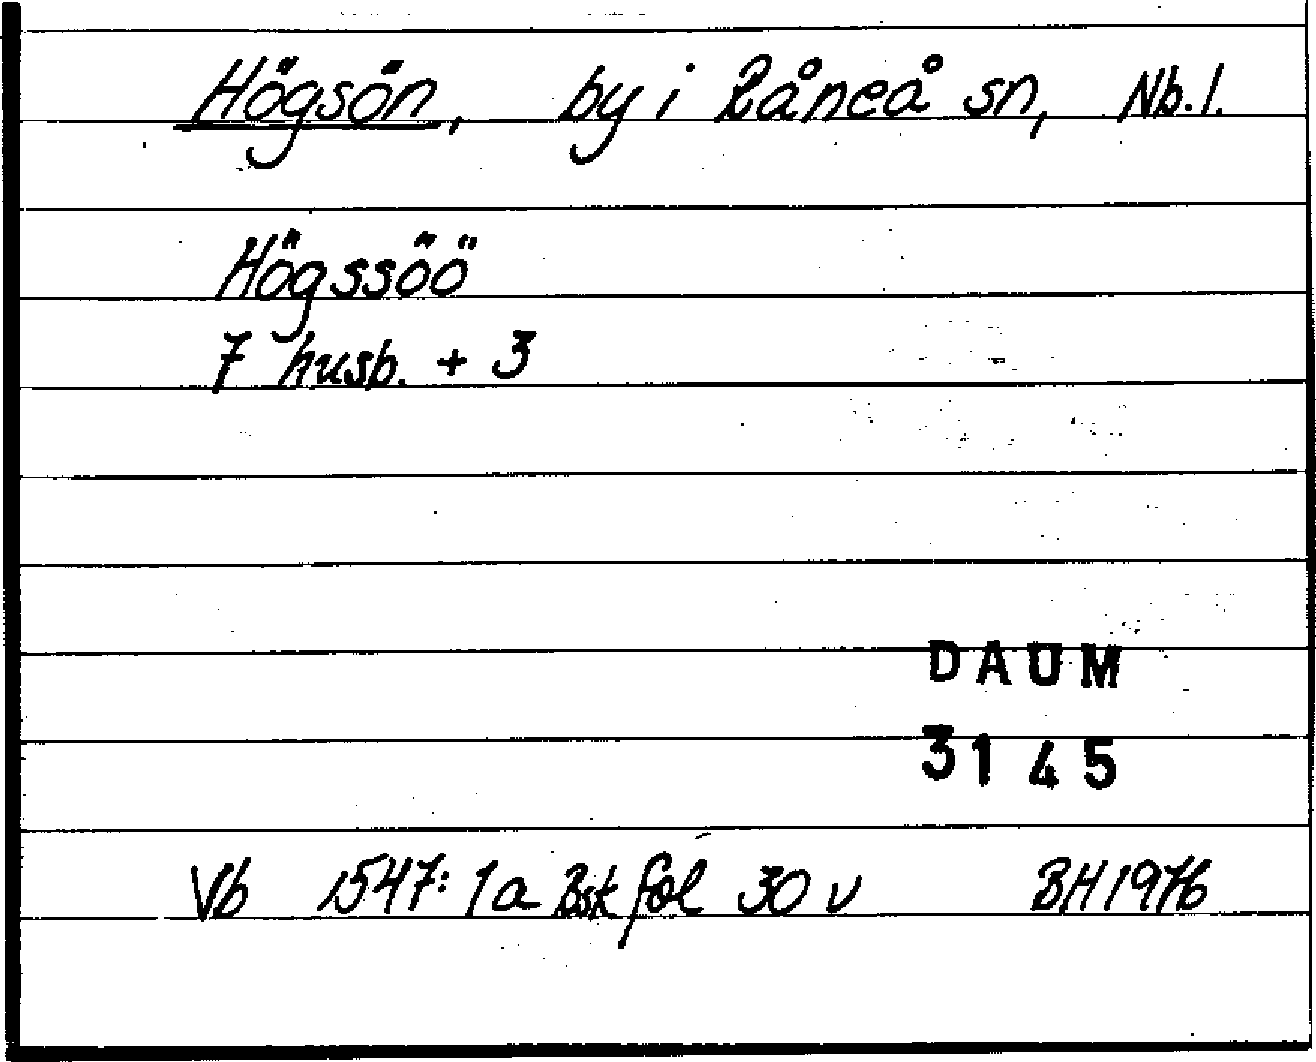 Högsön, by i Råneå sn, Nb.l.
Högssöö
7 husb. + 3
DAUM
3145
Vb 1547:1a Bsk fol 30 v BH 1976